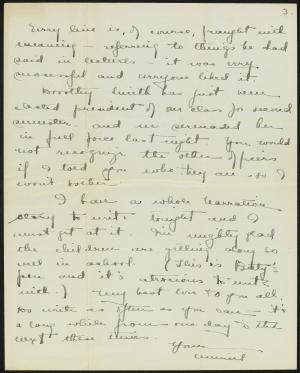 3.
Every line is, of course, fraught with
meaning - referring to things he had
said in lectures - it was very
successful and everyone liked it.
Dorothy Smith has just been
elected president of our class for second
semester - and we serenaded her
in full force last night. You would
not recognize the other officers
if I told you who they are so I
won't bother.
I have a whole narrative
story to write tonight and I
must get at it. I'm mighty glad
the children are getting along so
well in school. (This is Betty's
pen and it's atrocious to write
with.) My best love to you all.
Do write as often as you can - it's
a long while from one day to the
next these times.
Yours
Muriel